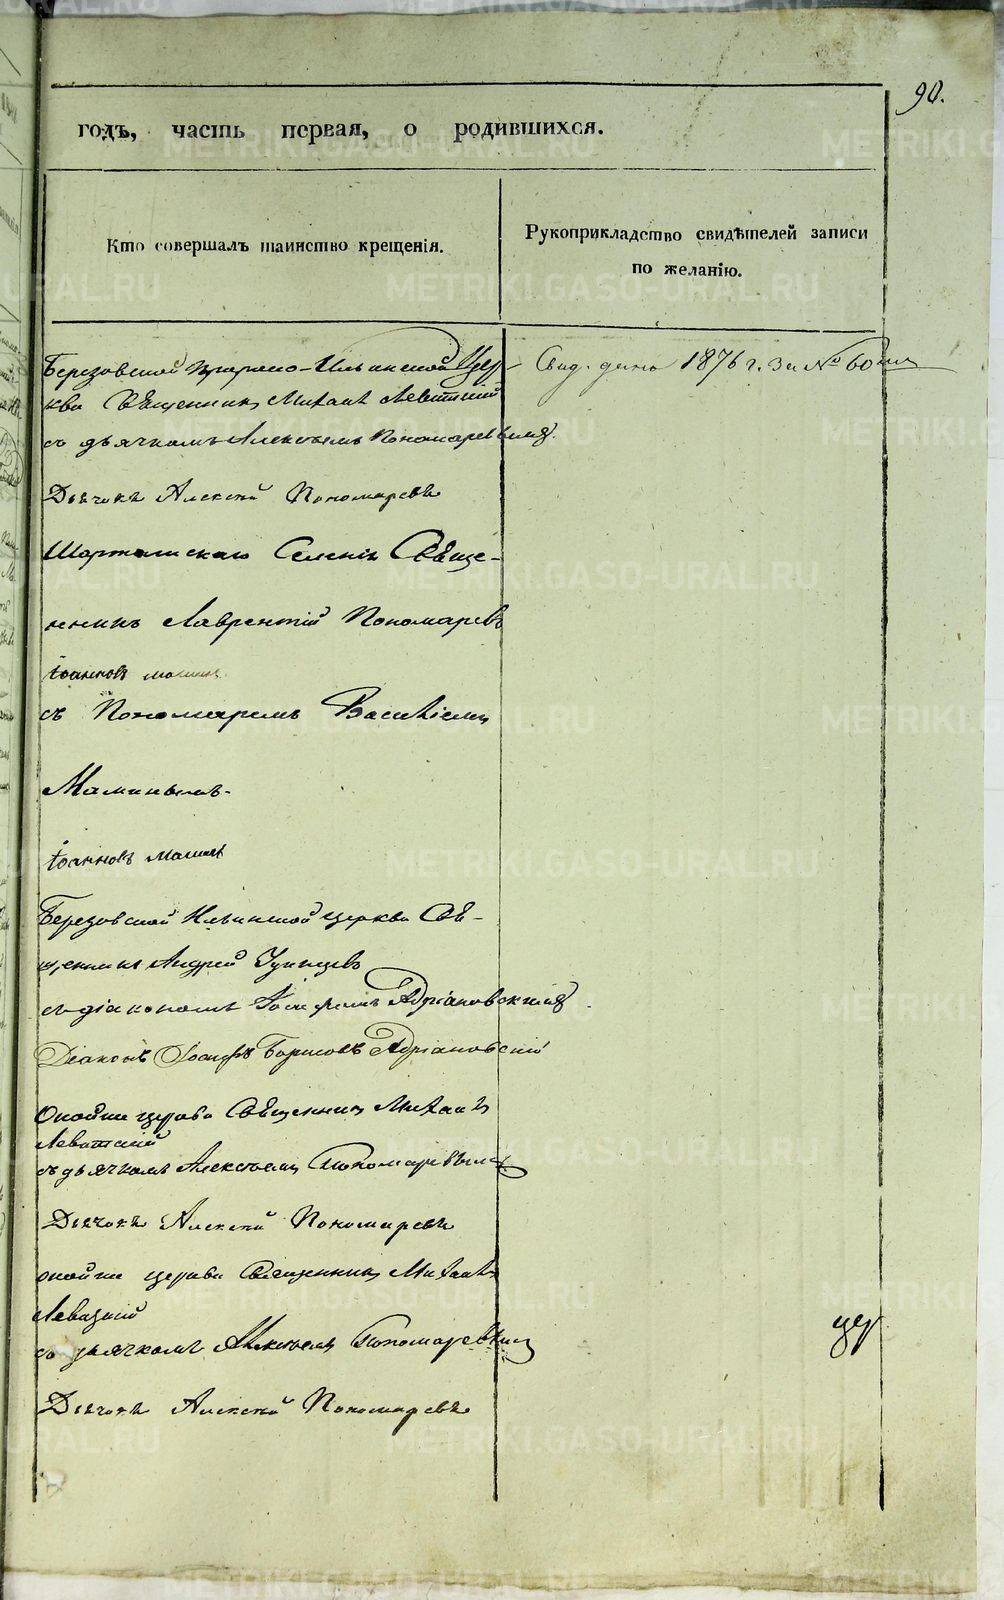 90.
годъ, часть первая, о родившихся.
Кто совершалъ таинство крещенія.
Рукоприкладство свидѣтелей записи
по желанію.
Березовской Пророко-Ильинской Цер-
кви Священникъ Михаилъ Левитскій
съ дьячкомъ Алексѣемъ Пономаревымъ.
Свид. дано 1876 г. За №
Дьячокъ Алексѣй Пономаревъ
Селенія Свяще-
нникъ Лаврентій Пономаревъ
Іоанновъ
съ Пономаремъ Василіемъ
Маминымъ.
Іоанновъ
Березовской Ильинской церкви Свя-
щенникъ Андрей
съ діакономъ Іосифомъ Адріановскимъ.
Діаконъ Іосифъ Борисовъ Адріановскій
Оной же церкви Священникъ Михаилъ
Левитскій
съ дьячкомъ Алексѣемъ Пономаревымъ
Дьячокъ Алексѣй Пономаревъ
оной же церкви Священникъ Михаилъ
Левицкій
со дьячкомъ Алексѣемъ Пономаревымъ
цер
Дьячокъ Алексѣй Пономаревъ
METRIKI.GASO-URAL.RU